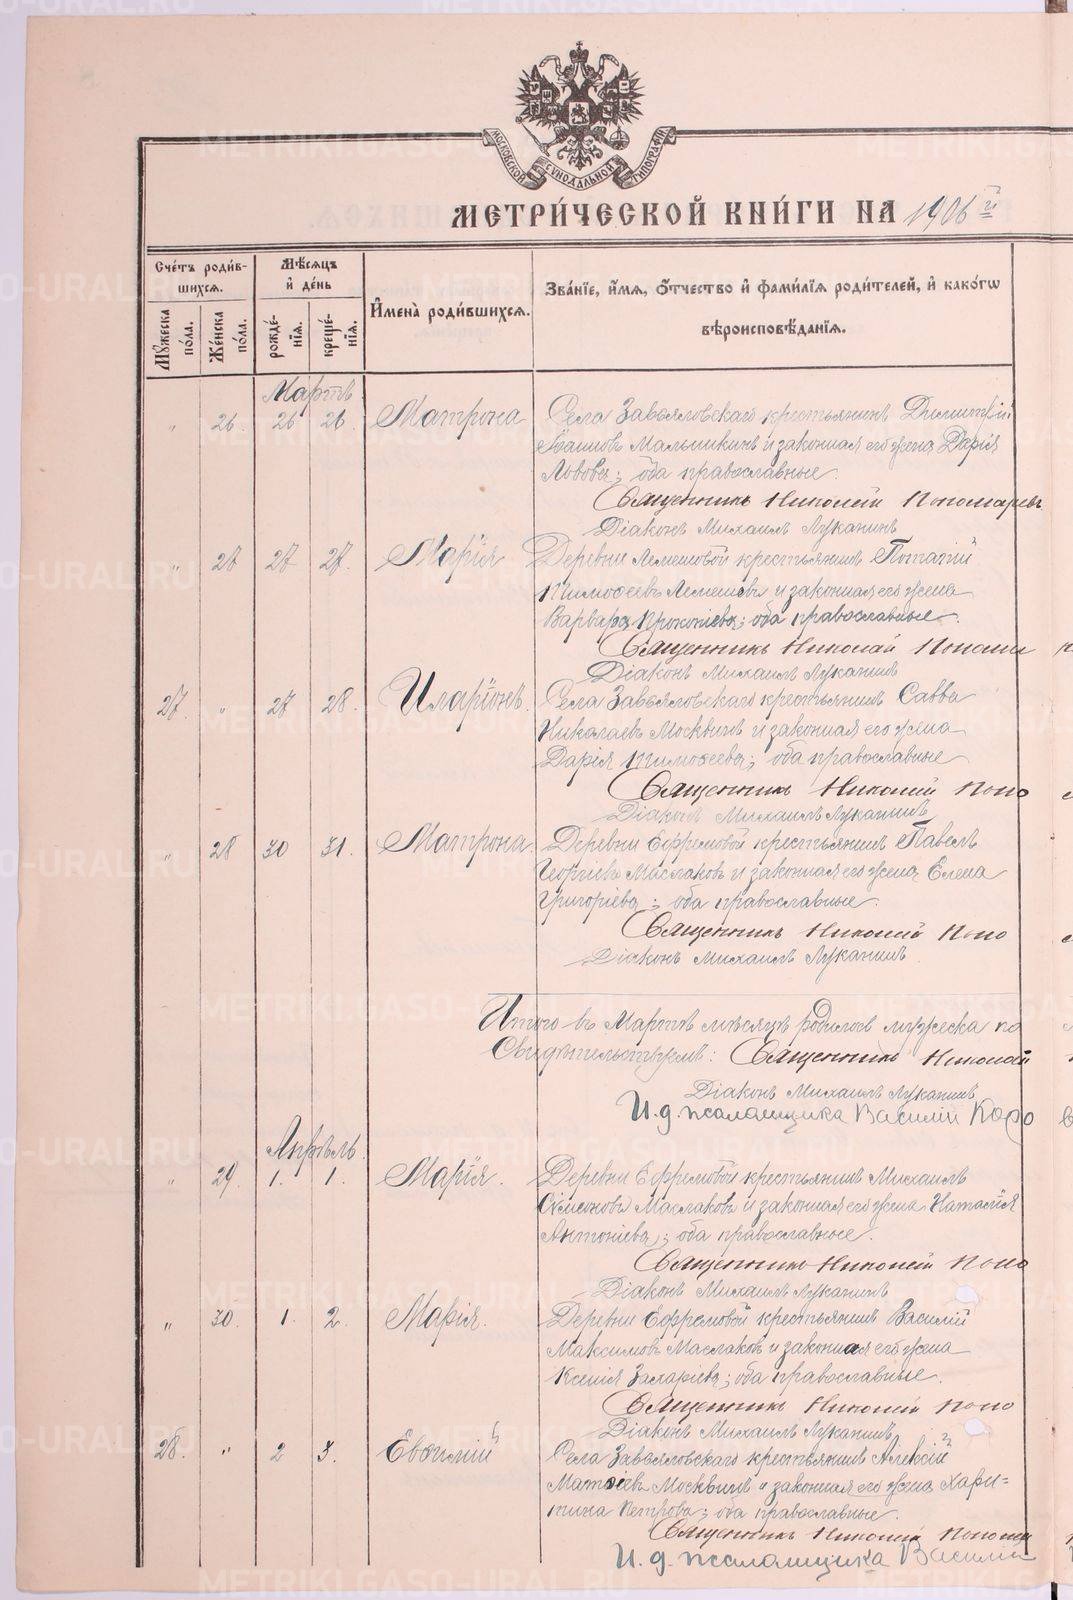 МОСКОВСКОЙ СѴНОДАЛЬНОЙ ТИПОГРАФІИ
МЕТРИ́ЧЕСКОЙ КНИ́ГИ НА 1906 й
Сче́тъ роди́в-
шихсѧ.
Мꙋ́жеска по́ла.
Же́нска по́ла.
Мѣ́сѧцъ
и҆ де́нь
рожде́-
нїѧ.
креще́-
нїѧ.
И҆мена̀ роди́вшихсѧ.
Зва́нїе, и҆́мѧ, ѻ҆́тчество и҆ фами́лїѧ роди́телей, и҆ како́гѡ
вѣроисповѣ́данїѧ.
Мартъ
„ 26. 26 26. Матрона Села Завьяловскаго крестьянинъ Димитрій
Іоанновъ Малышкинъ и законная его жена Дарія
Львова; оба православные.
Священникъ Николай Пономаревъ
Діаконъ Михаилъ Луканинъ
„ 27 27 27. Марія Деревни Лемешовой крестьянинъ Потапій
Тимоѳеевъ Лемешовъ и законная его жена
Варвара Прокопіева; оба православные.
Священникъ Николай Пономи
Діаконъ Михаилъ Луканинъ
27. „ 27 28. Иларіонъ. Села Завьяловскаго крестьянинъ Савва
Николаевъ Москвинъ и законная его жена
Дарія Тимоѳеева; оба православные
Священникъ Николай Поно
Діаконъ Михаилъ Луканинъ
„ 28 30 31. Матрона Деревни Ефремовой крестьянинъ Павелъ
Георгіевъ Маслаковъ и законная его жена Елена
Григоріева; оба православные.
Священникъ Николай Поно
Діаконъ Михаилъ Луканинъ.
Итого въ Мартѣ мѣсяцѣ родилось мужеска по
Свидѣтельствуемъ: Священникъ Николай
Діаконъ Михаилъ Луканинъ
И.д. псаломщика Василій Коро
Апрѣль.
„ 29. 1. 1. Марія. Деревни Ефремовой крестьянинъ Михаилъ
Сѵмеоновъ Маслаковъ и законная его жена Наталія
Антоніева; оба православные.
Священникъ Николай Поно
Діаконъ Михаилъ Луканинъ
„ 30. 1. 2. Марія. Деревни Ефремовой крестьянинъ Василій
Максимовъ Маслаковъ и законная его жена
Ксенія Захаріева; оба православные.
Священникъ Николай Поно
Діаконъ Михаилъ Луканинъ
28. „ 2 3. Евѳимій Села Завьяловскаго крестьянинъ Алексій
Матѳіевъ Москвинъ и законная его жена Хари-
тина Петрова; оба православные.
Священникъ Николай Пономи
И.д. псаломщика Василій
METRIKI.GASO-URAL.RU